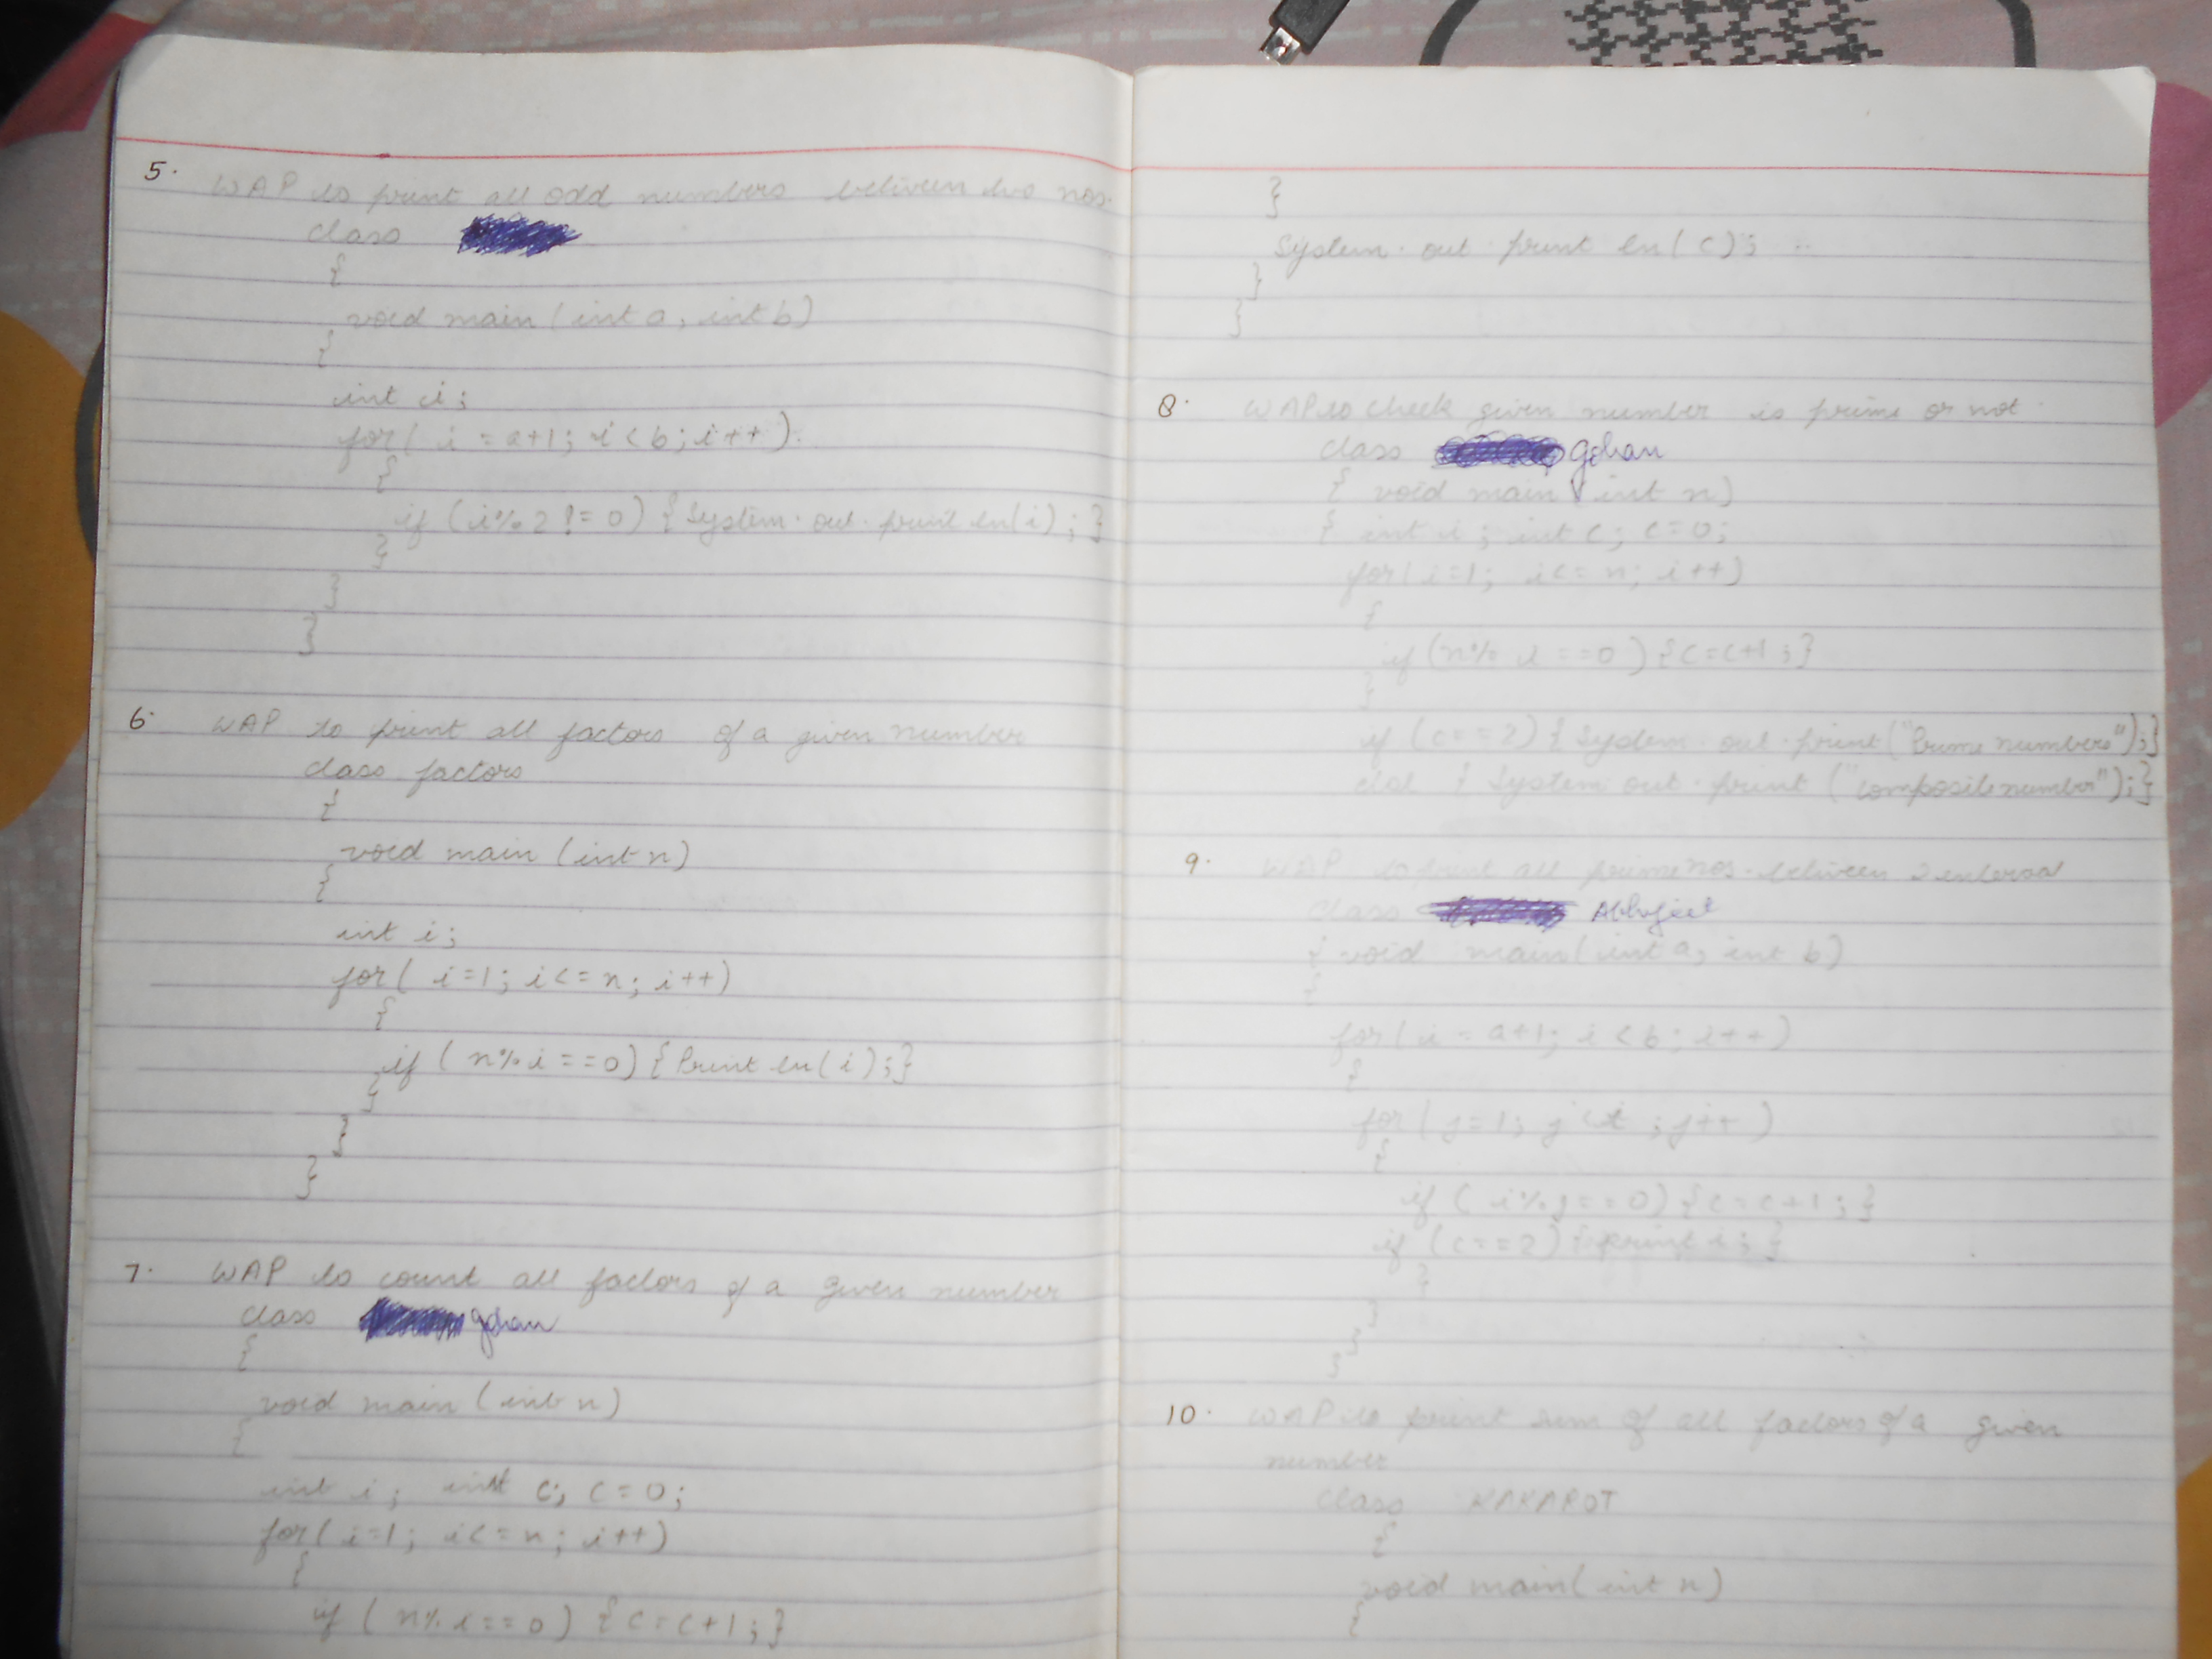 5. WAP to print all odd numbers between two nos.
class
{
void main (int a, int b)
{
int i;
for( i = a+1; i < b; i++).
{
if (i%2 != 0) {System.out.print ln(i);}
}
}
}
6. WAP to print all factors of a given number
class factors
{
void main (int n)
{
int i;
for( i=1; i<=n; i++)
{
if ( n%i==0) {Print ln(i);}
}
}
}
7. WAP to count all factors of a given number
class gohan
{
void main (int n)
{
int i; int c; c=0;
for( i=1; i<=n; i++)
{
if ( n%i==0) {c=c+1;}
}
System.out.print ln( c);
}
}
8. WAP to check given number is prime or not
class gohan
{ void main (int n)
{ int i; int c; c=0;
for( i=1; i<=n; i++)
{
if (n% i ==0) {c=c+1;}
}
if (c==2) { System.out.print("Prime numbers");}
{ System out.print ("composite number");}
9. WAP to print all prime nos. between 2 entered
class Abhijeet
{ void main( int a, int b)
{
for( i = a+1; i < b; i++)
{
for( j=1; j<i ; j++)
{
if ( i%j==0) {c=c+1;}
if (c==2) {print i;}
}
}
}
}
10. WAP to print sum of all factors of a given
number
class KAKAROT
{
void main( int n)
{